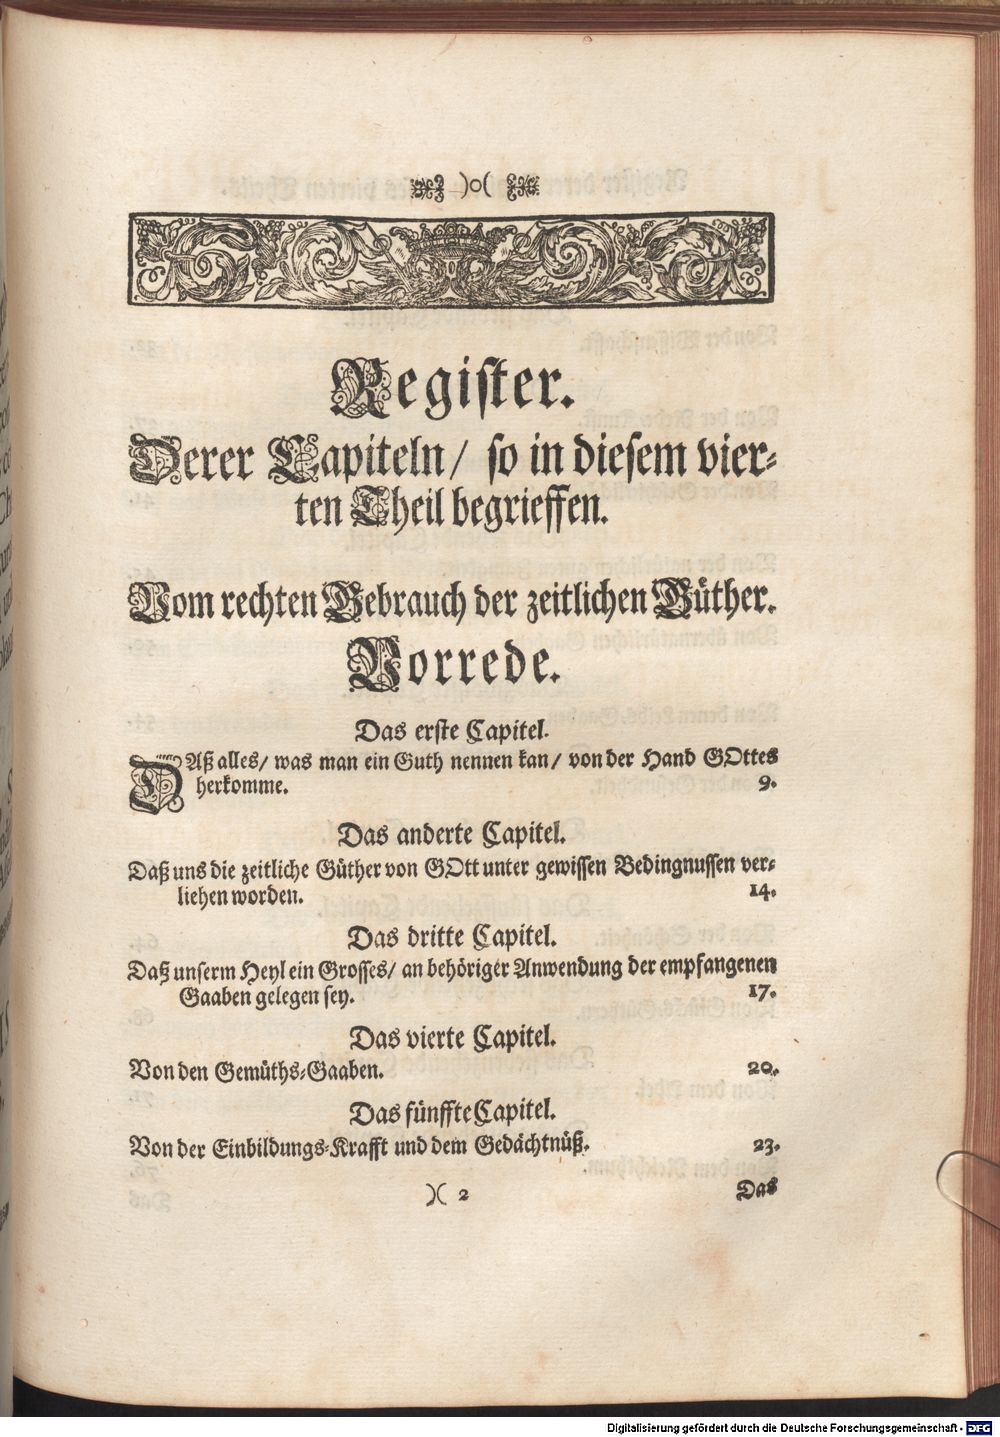 )o(
Register.
Derer Capiteln/ so in diesem vier-
ten Theil begrieffen.
Vom rechten Gebrauch der zeitlichen Güther.
Vorrede.
Das erste Capitel.
DAß alles/ was man ein Guth nennen kan/ von der Hand GOttes
herkomme. 9.
Das anderte Capitel.
Daß uns die zeitliche Güther von GOtt unter gewissen Bedingnussen ver-
liehen worden. 14.
Das dritte Capitel.
Daß unserm Heyl ein Grosses/ an behöriger Anwendung der empfangenen
Gaaben gelegen sey. 17.
Das vierte Capitel.
Von den Gemüths-Gaaben. 20.
Das fünffte Capitel.
Von der Einbildungs-Krafft und dem Gedächtnüß. 23.
)( 2 Das
Digitalisierung gefördert durch die Deutsche Forschungsgemeinschaft - DFG